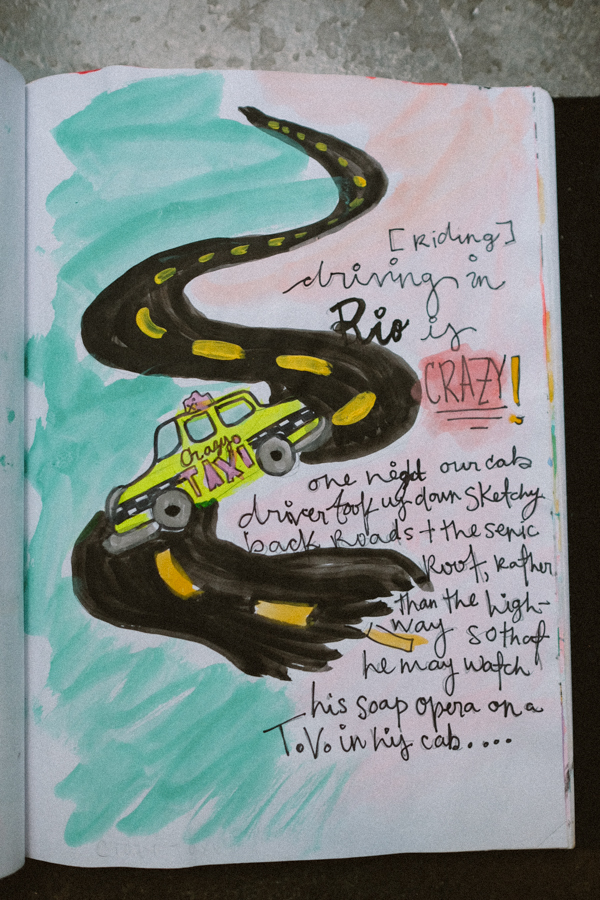 [Riding]
driving in
Rio is
CRAZY!
Crazy
TAXI
one night our cab
driver took us down sketchy
back Roads + the senic
Roof, Rather
than the high-
way so that
he may watch
his soap opera on a
T.V. in his cab....